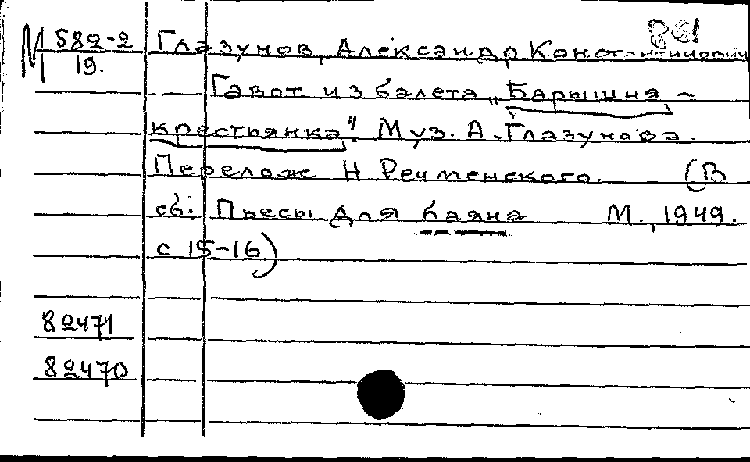 861
М 582-2 Глазунов, Александр Константинович
19.
Гавот из балета „Барышня -
крестьянка". Муз. А. Глазунова.
Перелож Н Речменского. (В
сб: Пьесы для баяна М., 1949.
с 15-16)
82471
82470